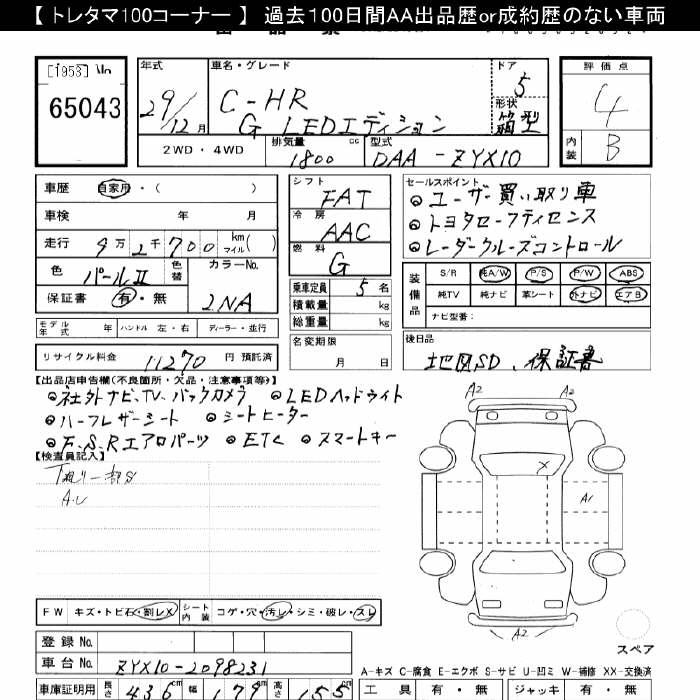 【 トレタマ100コーナー 】 過去100日間AA出品歴or成約歴のない車両
[1953]
65043
年式 29/12月
車名・グレード C-HR
G LEDエディション
ドア 5
形状 箱型
評価点 4
内装 B
2WD・4WD 排気量 1800 cc 型式 DAA-ZYX10
車歴 自家用・( )
車検 年 月
走行 9万2千700 km マイル( )
色 パールⅡ 色替 カラーNo. 2NA
保証書 有・無
シフト FAT
冷房 AAC
燃料 G
乗車定員 5名
積載量 kg
総重量 kg
セールスポイント
◎ユーザー買い取り車
◎トヨタセーフティセンス
◎レーダークルーズコントロール
装備品 S/R 純A/W P/S P/W ABS
純TV 純ナビ 革シート 外ナビ エアB
ナビ型番:
モデル年式 年 ハンドル 左・右 ディーラー・並行
名変期限 月 日
リサイクル料金 11270 円 預託済
後日品 地図SD、保証書
【出品店申告欄(不良箇所・欠品・注意事項等)】
◎社外ナビ、TV、バックカメラ ◎LEDヘッドライト
◎ハーフレザーシート ◎シートヒーター
◎F、S、Rエアロパーツ ◎ETC ◎スマートキー
【検査員記入】
A2 A2
X
A1
A2
FW キズ・トビ石・割レX シート内装 コゲ・穴・汚レ・シミ・破レ・スレ
スペア
登録No.
車台No. ZYX10-2098231
A-キズ C-腐食 E-エクボ S-サビ U-凹ミ W-補修 XX-交換済
車庫証明用 長さ 436cm 幅 179cm 高さ 155cm
工具 有・無 ジャッキ 有・無